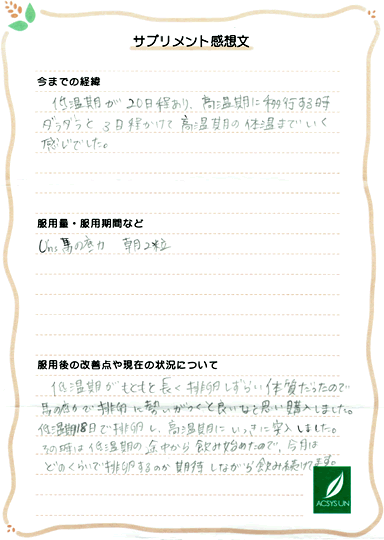 サプリメント感想文
今までの経緯
低温期が20日程あり、高温期に移行する時
ダラダラと3日程かけて高温期の体温までいく
感じでした。
服用量・服用期間など
Uhs馬の底力 朝2粒
服用後の改善点や現在の状況について
低温期がもともと長く排卵しずらい体質だったので
馬の底力で排卵に勢いがつくと良いなと思い購入しました。
低温期18日で排卵し、高温期にいっきに突入しました。
その時は低温期の途中から飲み始めたので、今月は
どのくらいで排卵するのか期待しながら飲み続けてます。
ACSYS UN